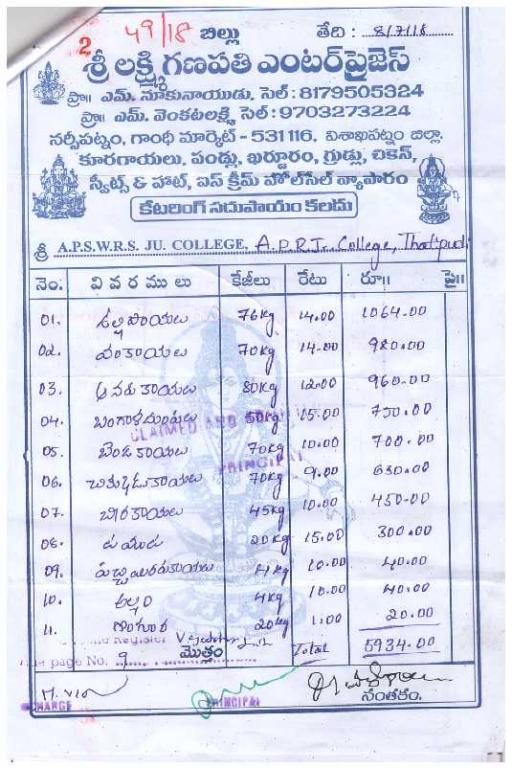 2 49/18 బిల్లు తేది : 8/7/18
శ్రీ లక్ష్మి గణపతి ఎంటర్‌ప్రైజెస్
ప్రొ॥ ఎమ్. నూకునాయుడు, సెల్ : 8179505324
ప్రొ॥ ఎమ్. వెంకటలక్ష్మి, సెల్ : 9703273224
నర్సీపట్నం, గాంధీ మార్కెట్ - 531116, విశాఖపట్నం జిల్లా.
కూరగాయలు, పండ్లు, ఖర్జూరం, గ్రుడ్లు, చికెన్,
స్వీట్స్ & హాట్, ఐస్ క్రీమ్ హోల్‌సేల్ వ్యాపారం
కేటరింగ్ సదుపాయం కలదు
శ్రీ A.P.S.W.R.S. JU. COLLEGE, A.P.R.J. College, Thatipudi
నెం. వివరములు కేజీలు రేటు రూ॥ పై॥
01. ఉల్లిపాయలు 76kg 14.00 1064.00
02. వంకాయలు 70kg 14.00 980.00
03. ఆనపకాయలు 80kg 12.00 960.00
04. బంగాళదుంపలు 50kg 15.00 750.00
CLAIMED AND
05. బెండకాయలు 70kg 10.00 700.00
PRINCIPAL
06. చిక్కుడుకాయలు 70kg 9.00 630.00
07. బీరకాయలు 45kg 10.00 450.00
08. టమోటా 20kg 15.00 300.00
09. పచ్చిమిరపకాయలు 4kg 10.00 40.00
10. అల్లం 4kg 10.00 40.00
11. గోంగూర 20kg 1.00 20.00
Register
page No. 9 మొత్తం Total 5934.00
CHARGE PRINCIPAL సంతకం.